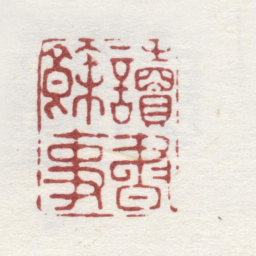 讀書
餘事